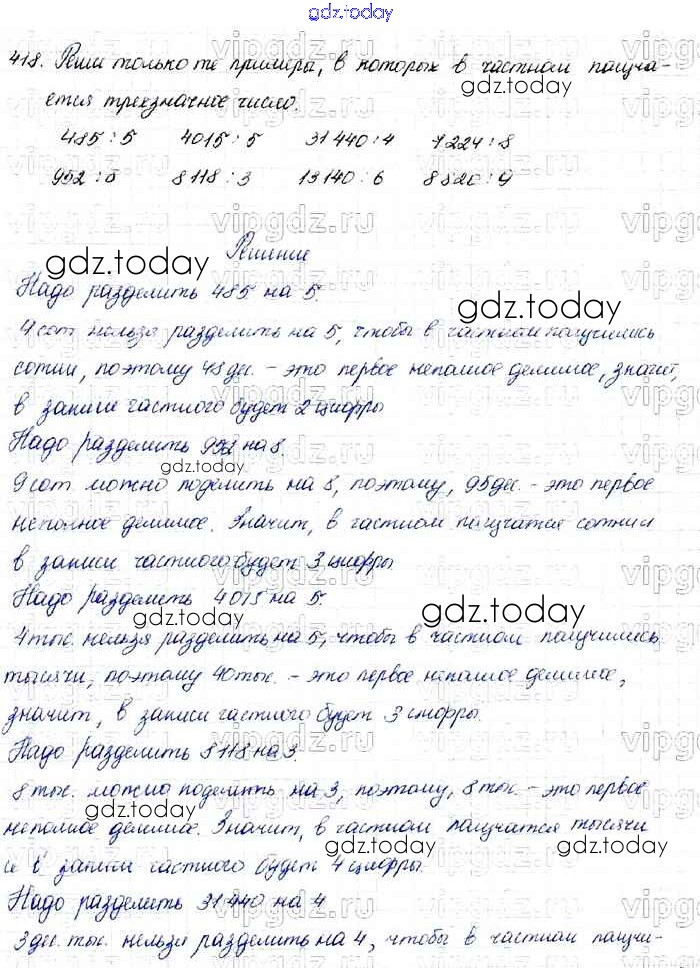 gdz.today
418. Реши только те примеры, в которых в частном получа-
ется трехзначное число.
485 : 5 4015 : 5 31 440 : 4 7224 : 8
952 : 8 8118 : 3 19140 : 6 8820 : 9
Решение
gdz.today
Надо разделить 485 на 5.
gdz.today
4 сот нельзя разделить на 5, чтобы в частном получились
сотни, поэтому 48 дес. - это первое неполное делимое, значит,
в записи частного будет 2 цифры
Надо разделить 952 на 8.
gdz.today
9 сот можно поделить на 8, поэтому, 95 дес. - это первое
неполное делимое. Значит, в частном получатся сотни и
в записи частного будет 3 цифры
Надо разделить 4015 на 5.
gdz.today
4 тыс. нельзя разделить на 5, чтобы в частном получились
тысячи, поэтому 40 тыс. - это первое неполное делимое,
значит, в записи частного будет 3 цифры.
Надо разделить 8118 на 3.
8 тыс. можно поделить на 3, поэтому, 8 тыс. - это первое
gdz.today
неполное делимое. Значит, в частном получатся тысячи
и в записи частного будет 4 цифры.
gdz.today
Надо разделить 31 440 на 4
3 дес. тыс. нельзя разделить на 4, чтобы в частном получи-